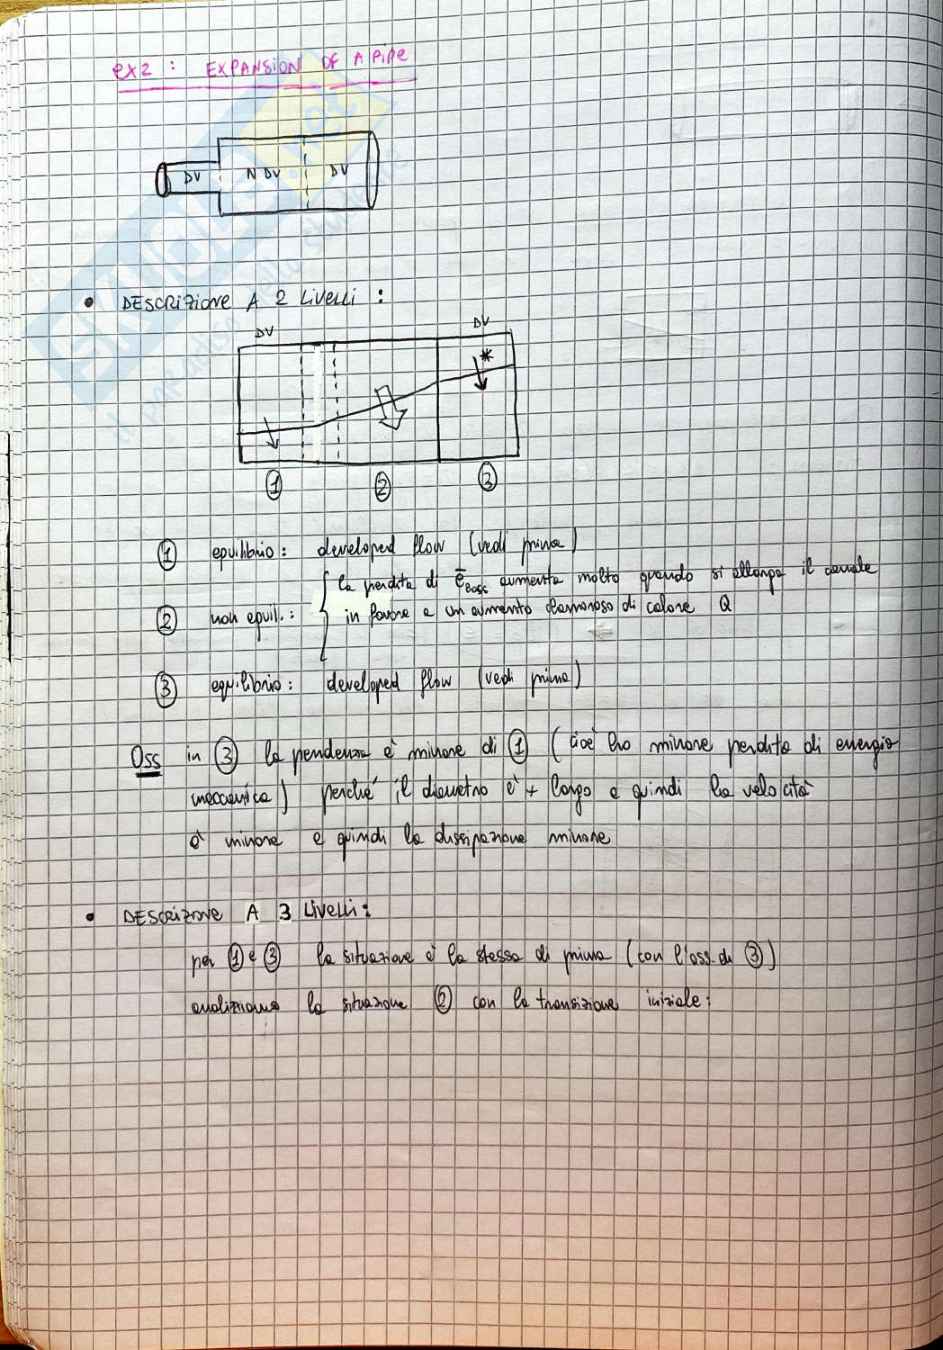 ex2 : EXPANSION OF A PIPE
DV N DV DV
• DESCRIZIONE A 2 LIVELLI :
DV DV
*
① ② ③
① equilibrio : developed flow (vedi prima)
la perdita di ē aumenta molto quando si allarga il canale
② non equil. : in favore a un aumento clamoroso di calore Q
③ equilibrio : developed flow (vedi prima)
Oss in ③ la pendenza è minore di ① (cioè ho minore perdita di energia
meccanica) perché il diametro è + largo e quindi la velocità
è minore e quindi la dissipazione minore
• DESCRIZIONE A 3 LIVELLI :
per ① e ③ la situazione è la stessa di prima (con l'oss. di ③)
analizziamo la situazione ② con la transizione iniziale :